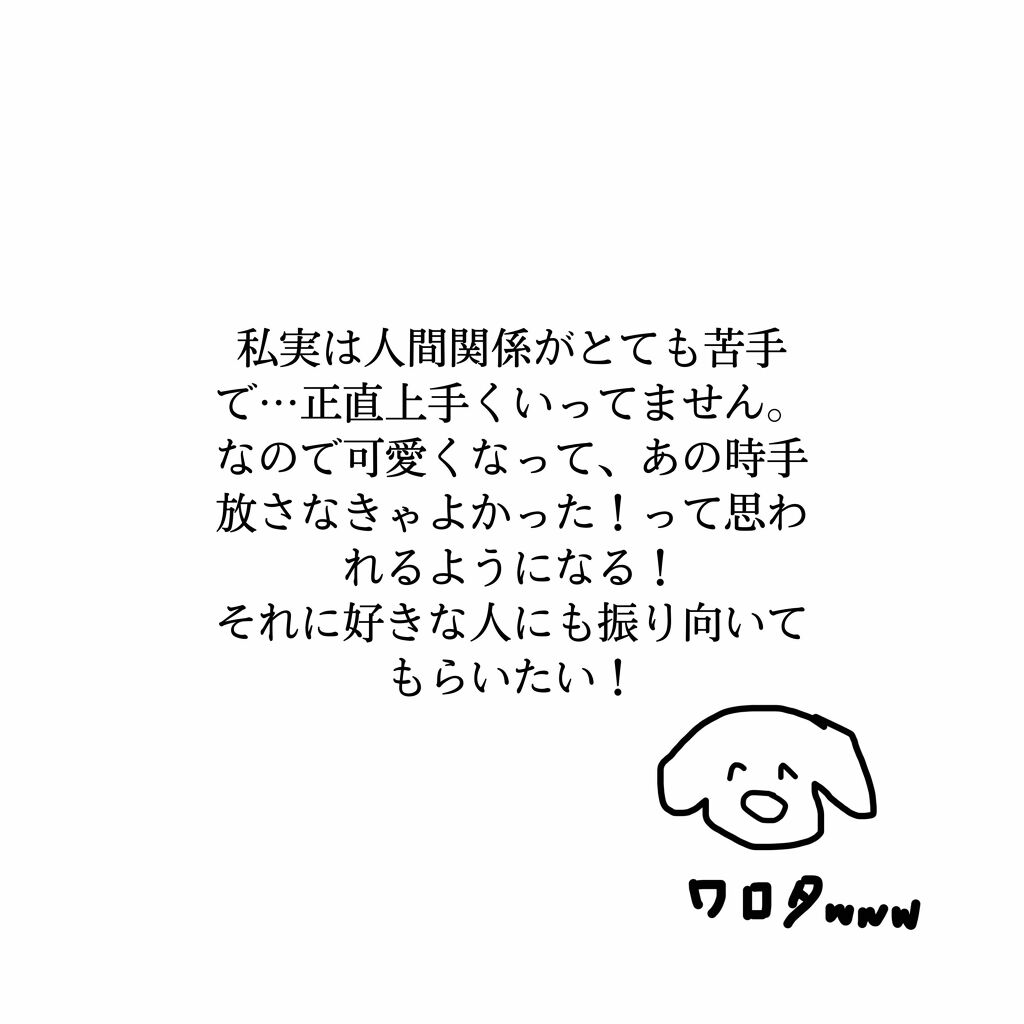 私実は人間関係がとても苦手
で…正直上手くいってません。
なので可愛くなって、あの時手
放さなきゃよかった！って思わ
れるようになる！
それに好きな人にも振り向いて
もらいたい！
ワロタwww